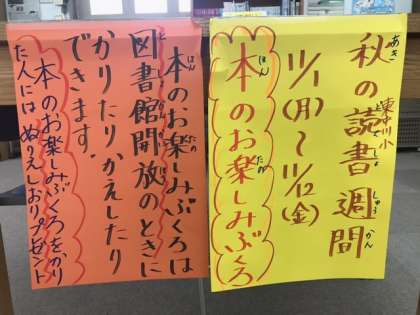 秋の読書週間
11/1(月)〜11/12(金)
本のお楽しみぶくろ
本のお楽しみぶくろは
図書館開放のときに
かりたりかえしたり
できます。
本のお楽しみぶくろをかり
た人には ぬりえしおりプレゼント